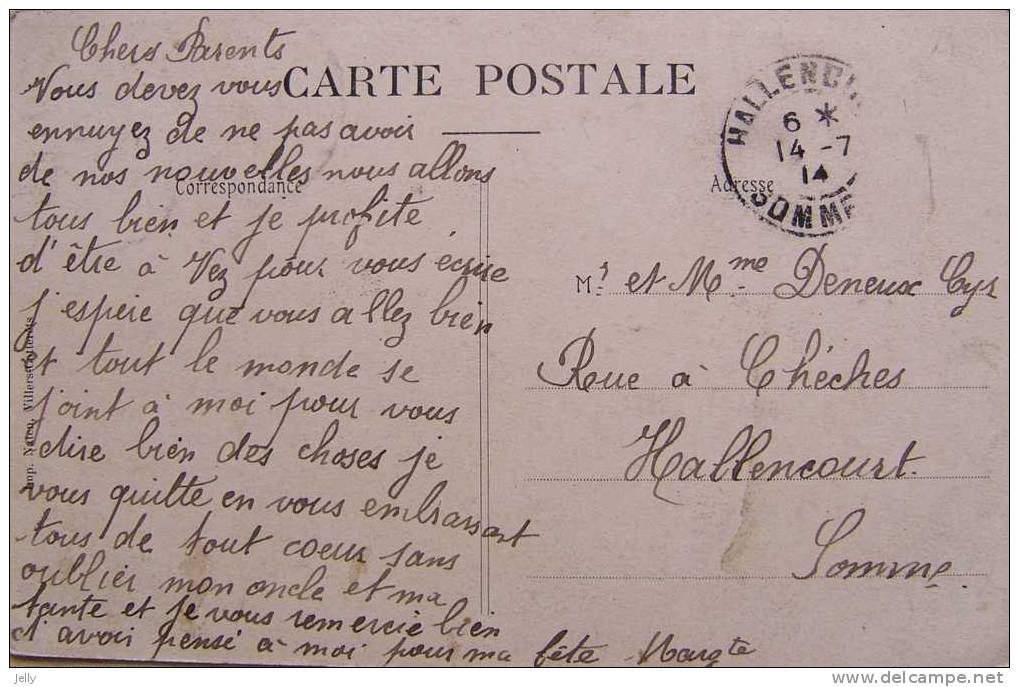 Chers Parents
Vous devez vous
ennuyez de ne pas avoir
de nos nouvelles nous allons
tous bien et je profite
d'être à Vez pour vous écrire
j'espère que vous allez bien
et tout le monde se
joint à moi pour vous
dire bien des choses je
vous quitte en vous embrassant
tous de tout coeur sans
oublier mon oncle et ma
tante et je vous remercie bien
d'avoir pensé à moi pour ma fête Margte
CARTE POSTALE
Correspondance
Adresse
HALLENC
6 *
14 -7
14
SOMME
Mr. et Mme. Deneux Cys
Rue à Chéches
Hallencourt.
Somme.
Imp. Villers-Cotterêts
Jelly
www.delcampe.net